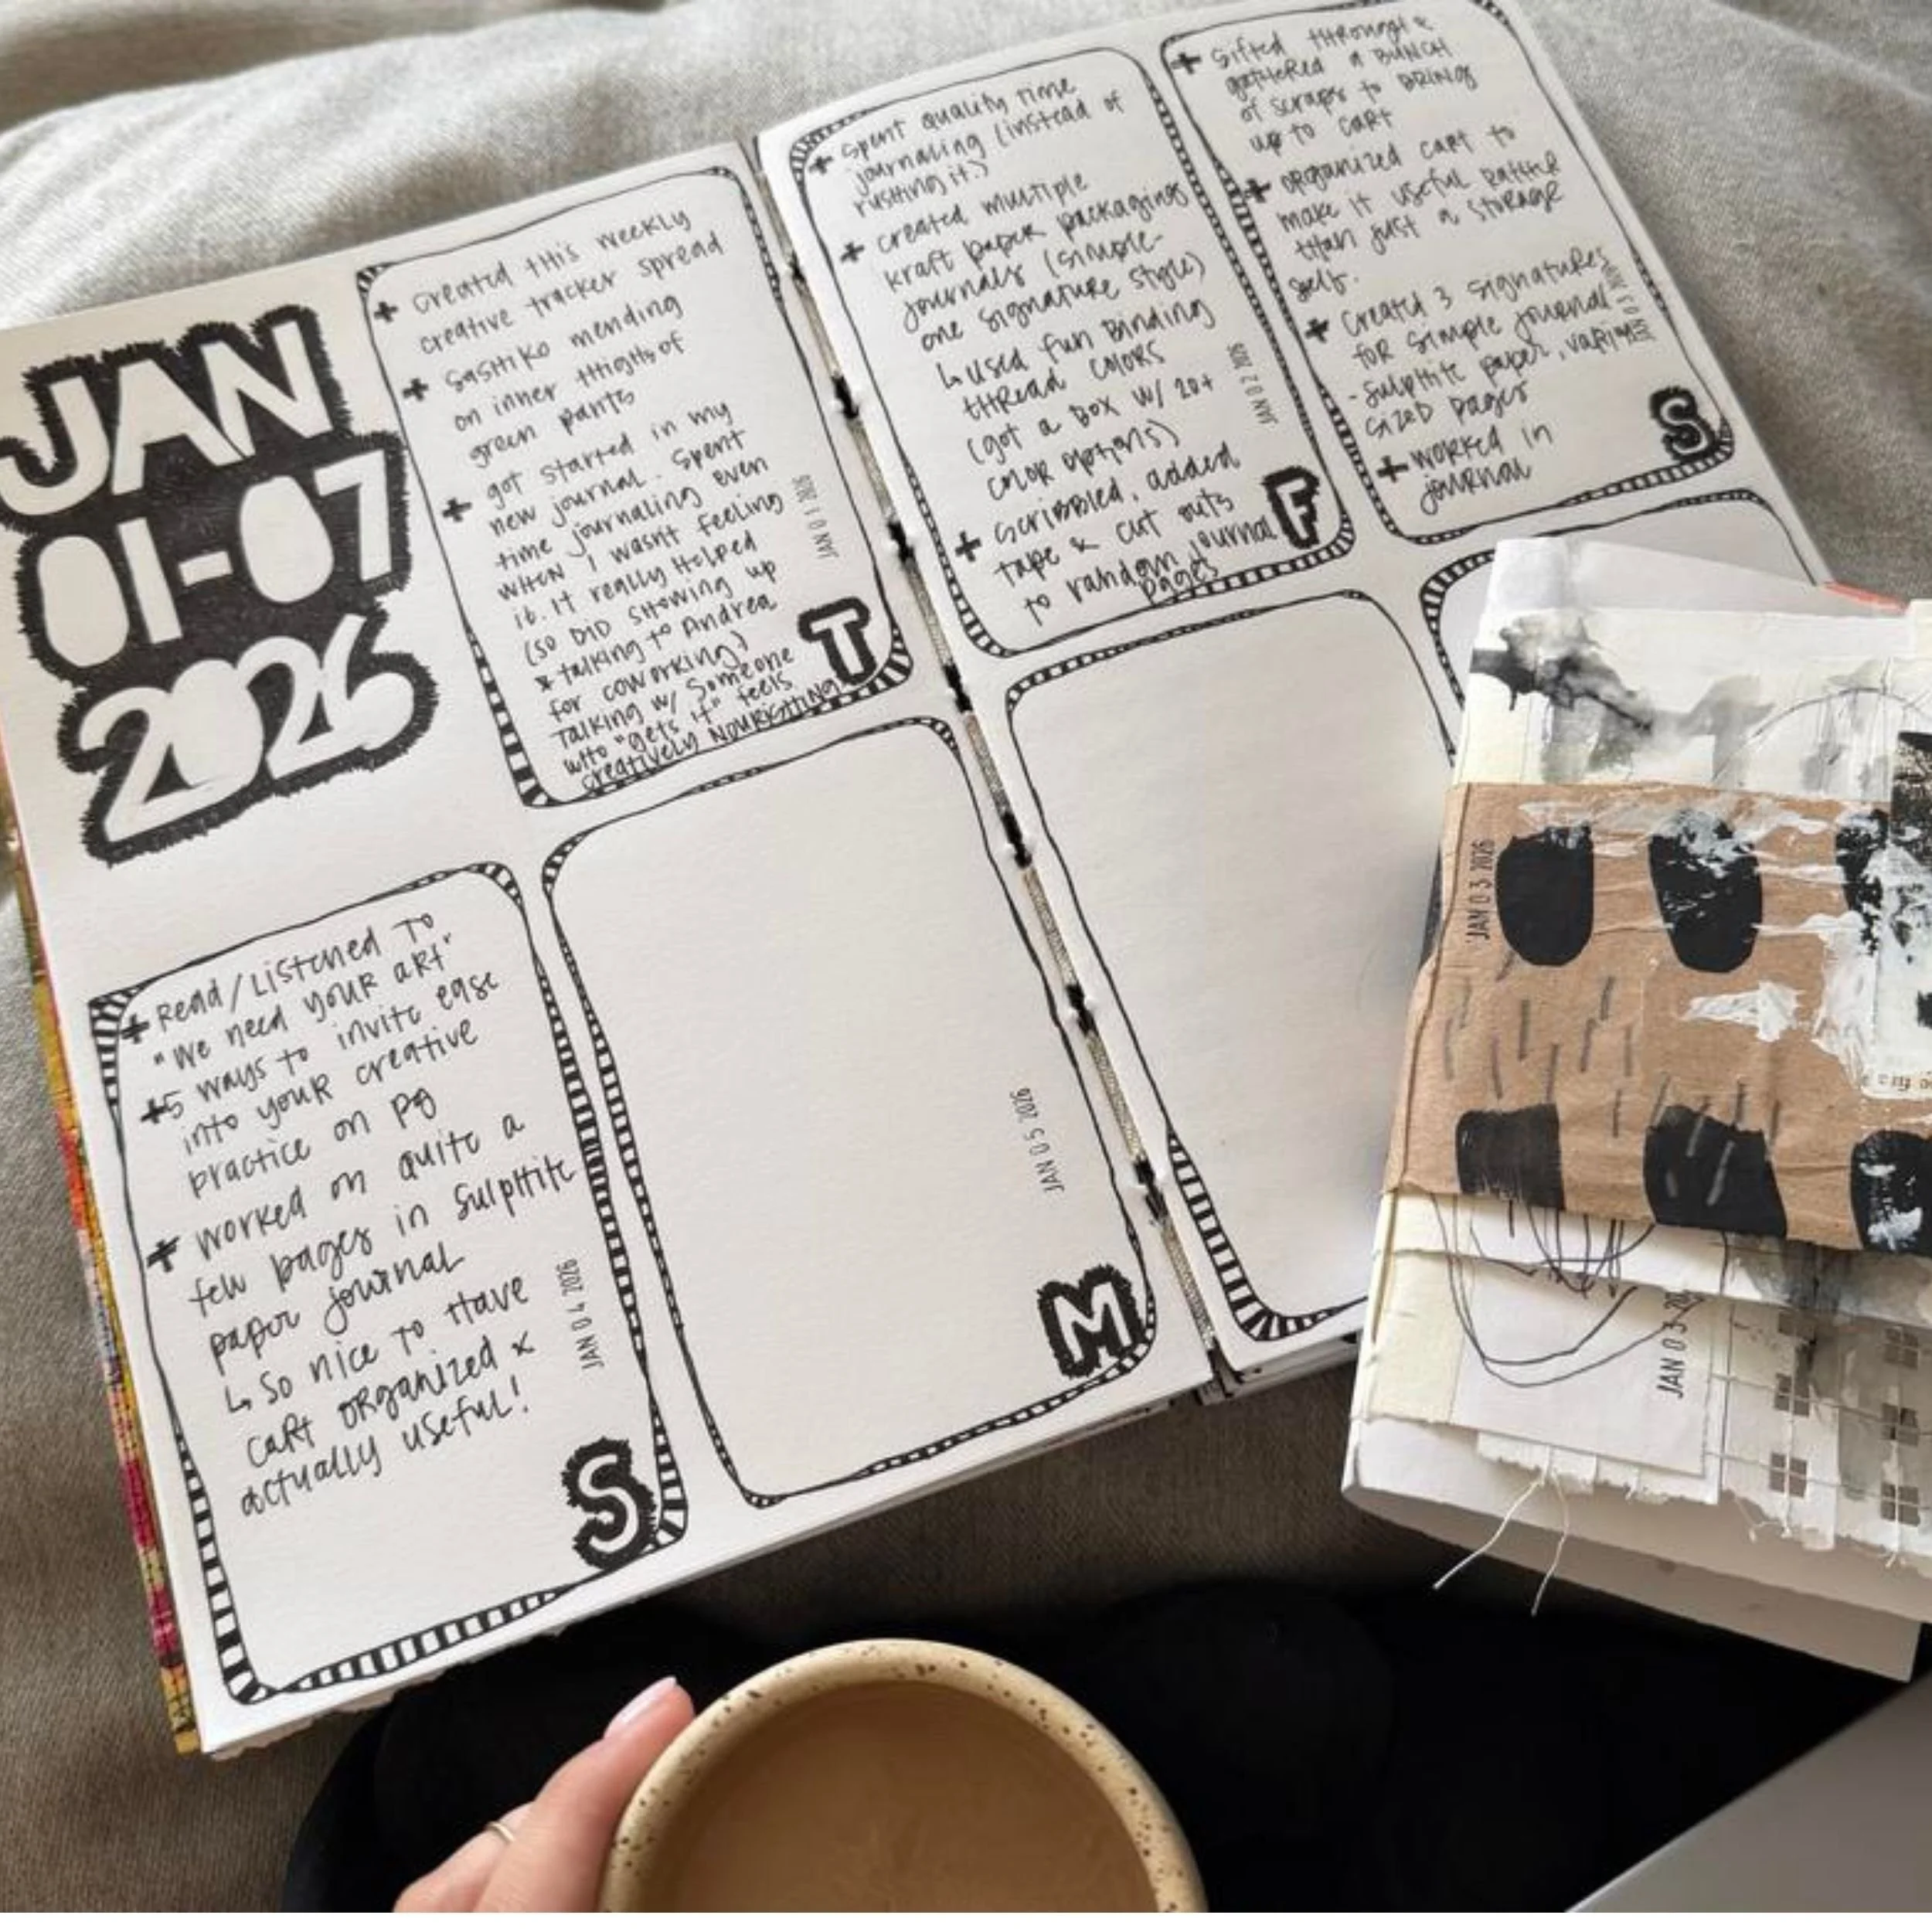 JAN
01-07
2026
+ created this weekly
creative tracker spread
+ sashiko mending
on inner thighs of
green pants
+ got started in my
new journal. Spent
time journaling even
when I wasn't feeling
it. It really helped
(so DID showing up
& talking to Andrea
for coworking)
Talking w/ someone
who "gets it" feels
creatively nourishing
JAN 0 1 2026
T
+ spent quality time
journaling (instead of
rushing it!)
+ created multiple
kraft paper packagings
journals (simple-
one signature style)
↳ used fun binding
thread colors
(got a box w/ 20+
color options)
+ scribbled, added
tape & cut outs
to random journal
pages
JAN 0 2 2026
F
+ sifted through &
gathered a BUNCH
of scraps to bring
up to cart
+ organized cart to
make it useful rather
than just a storage
self.
+ created 3 signatures
for simple journal
- sulphite paper, varying
sized pages
+ worked in
journal
JAN 0 3 2026
S
+ Read/Listened to
"We need your art"
+ 5 ways to invite ease
into your creative
practice on pg
+ worked on quite a
few pages in sulphite
paper journal
↳ so nice to have
cart organized &
actually useful!
JAN 0 4 2026
S
JAN 0 5 2026
M
JAN 0 3 2026
JAN 0 3 20